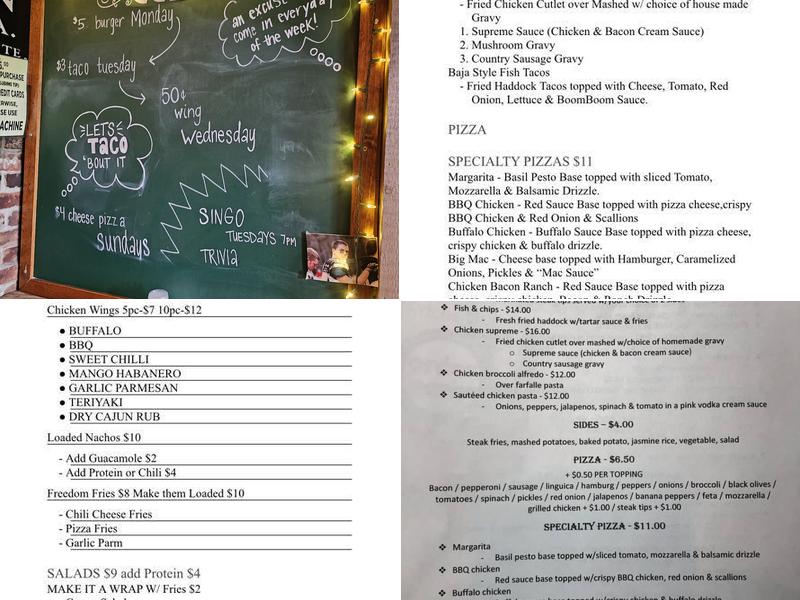 $5 burger Monday
an excuse
come in everyday
of the week!
$3 taco tuesday
50¢
wing
Wednesday
LETS
TACO
'BOUT IT
$4 cheese pizza
Sundays
SINGO
TUESDAYS 7PM
TRIVIA
PURCHASE
CREDIT CARDS
USE
MACHINE
- Fried Chicken Cutlet over Mashed w/ choice of house made
Gravy
1. Supreme Sauce (Chicken & Bacon Cream Sauce)
2. Mushroom Gravy
3. Country Sausage Gravy
Baja Style Fish Tacos
- Fried Haddock Tacos topped with Cheese, Tomato, Red
Onion, Lettuce & BoomBoom Sauce.
PIZZA
SPECIALTY PIZZAS $11
Margarita - Basil Pesto Base topped with sliced Tomato,
Mozzarella & Balsamic Drizzle.
BBQ Chicken - Red Sauce Base topped with pizza cheese,crispy
BBQ Chicken & Red Onion & Scallions
Buffalo Chicken - Buffalo Sauce Base topped with pizza cheese,
crispy chicken & buffalo drizzle.
Big Mac - Cheese base topped with Hamburger, Caramelized
Onions, Pickles & “Mac Sauce”
Chicken Bacon Ranch - Red Sauce Base topped with pizza
cheese, crispy chicken, Bacon & Ranch Drizzle
Chicken Wings 5pc-$7 10pc-$12
● BUFFALO
● BBQ
● SWEET CHILLI
● MANGO HABANERO
● GARLIC PARMESAN
● TERIYAKI
● DRY CAJUN RUB
Loaded Nachos $10
- Add Guacamole $2
- Add Protein or Chili $4
Freedom Fries $8 Make them Loaded $10
- Chili Cheese Fries
- Pizza Fries
- Garlic Parm
SALADS $9 add Protein $4
MAKE IT A WRAP W/ Fries $2
❖ Fish & chips - $14.00
- Fresh fried haddock w/tartar sauce & fries
❖ Chicken supreme - $16.00
- Fried chicken cutlet over mashed w/choice of homemade gravy
o Supreme sauce (chicken & bacon cream sauce)
o Country sausage gravy
❖ Chicken broccoli alfredo - $12.00
- Over farfalle pasta
❖ Sautéed chicken pasta - $12.00
- Onions, peppers, jalapenos, spinach & tomato in a pink vodka cream sauce
SIDES – $4.00
Steak fries, mashed potatoes, baked potato, jasmine rice, vegetable, salad
PIZZA - $6.50
+ $0.50 PER TOPPING
Bacon / pepperoni / sausage / linguica / hamburg / peppers / onions / broccoli / black olives /
tomatoes / spinach / pickles / red onion / jalapenos / banana peppers / feta / mozzarella /
grilled chicken + $1.00 / steak tips + $1.00
SPECIALTY PIZZA - $11.00
❖ Margarita
- Basil pesto base topped w/sliced tomato, mozzarella & balsamic drizzle
❖ BBQ chicken
- Red sauce base topped w/crispy BBQ chicken, red onion & scallions
❖ Buffalo chicken